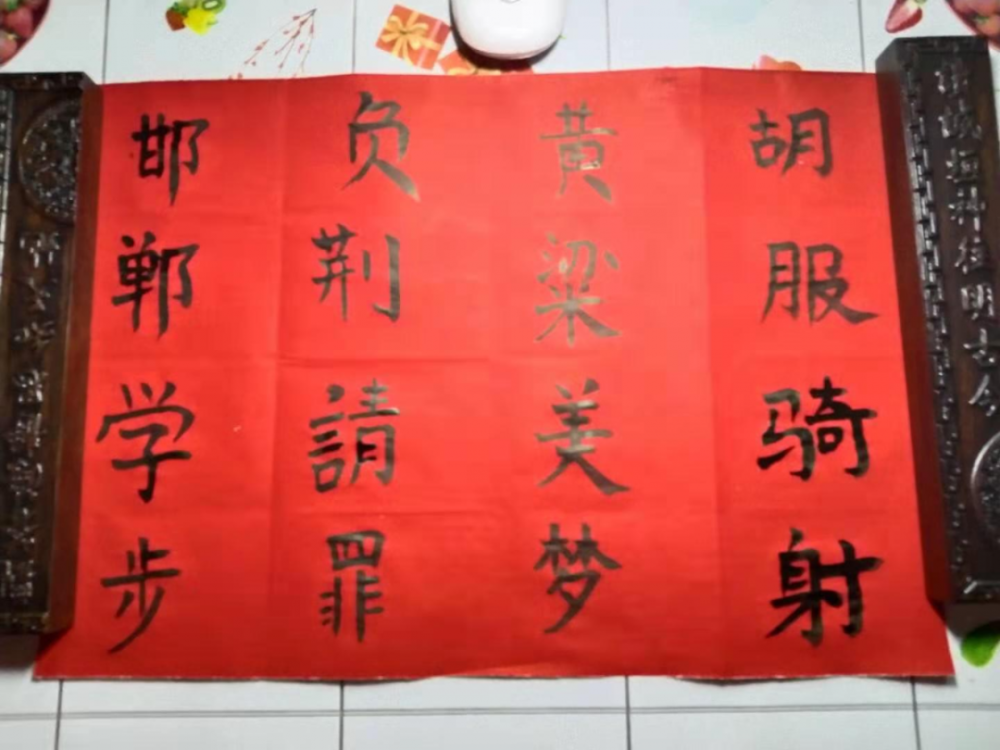 胡服骑射
黄梁美梦
负荆請罪
邯郸学步